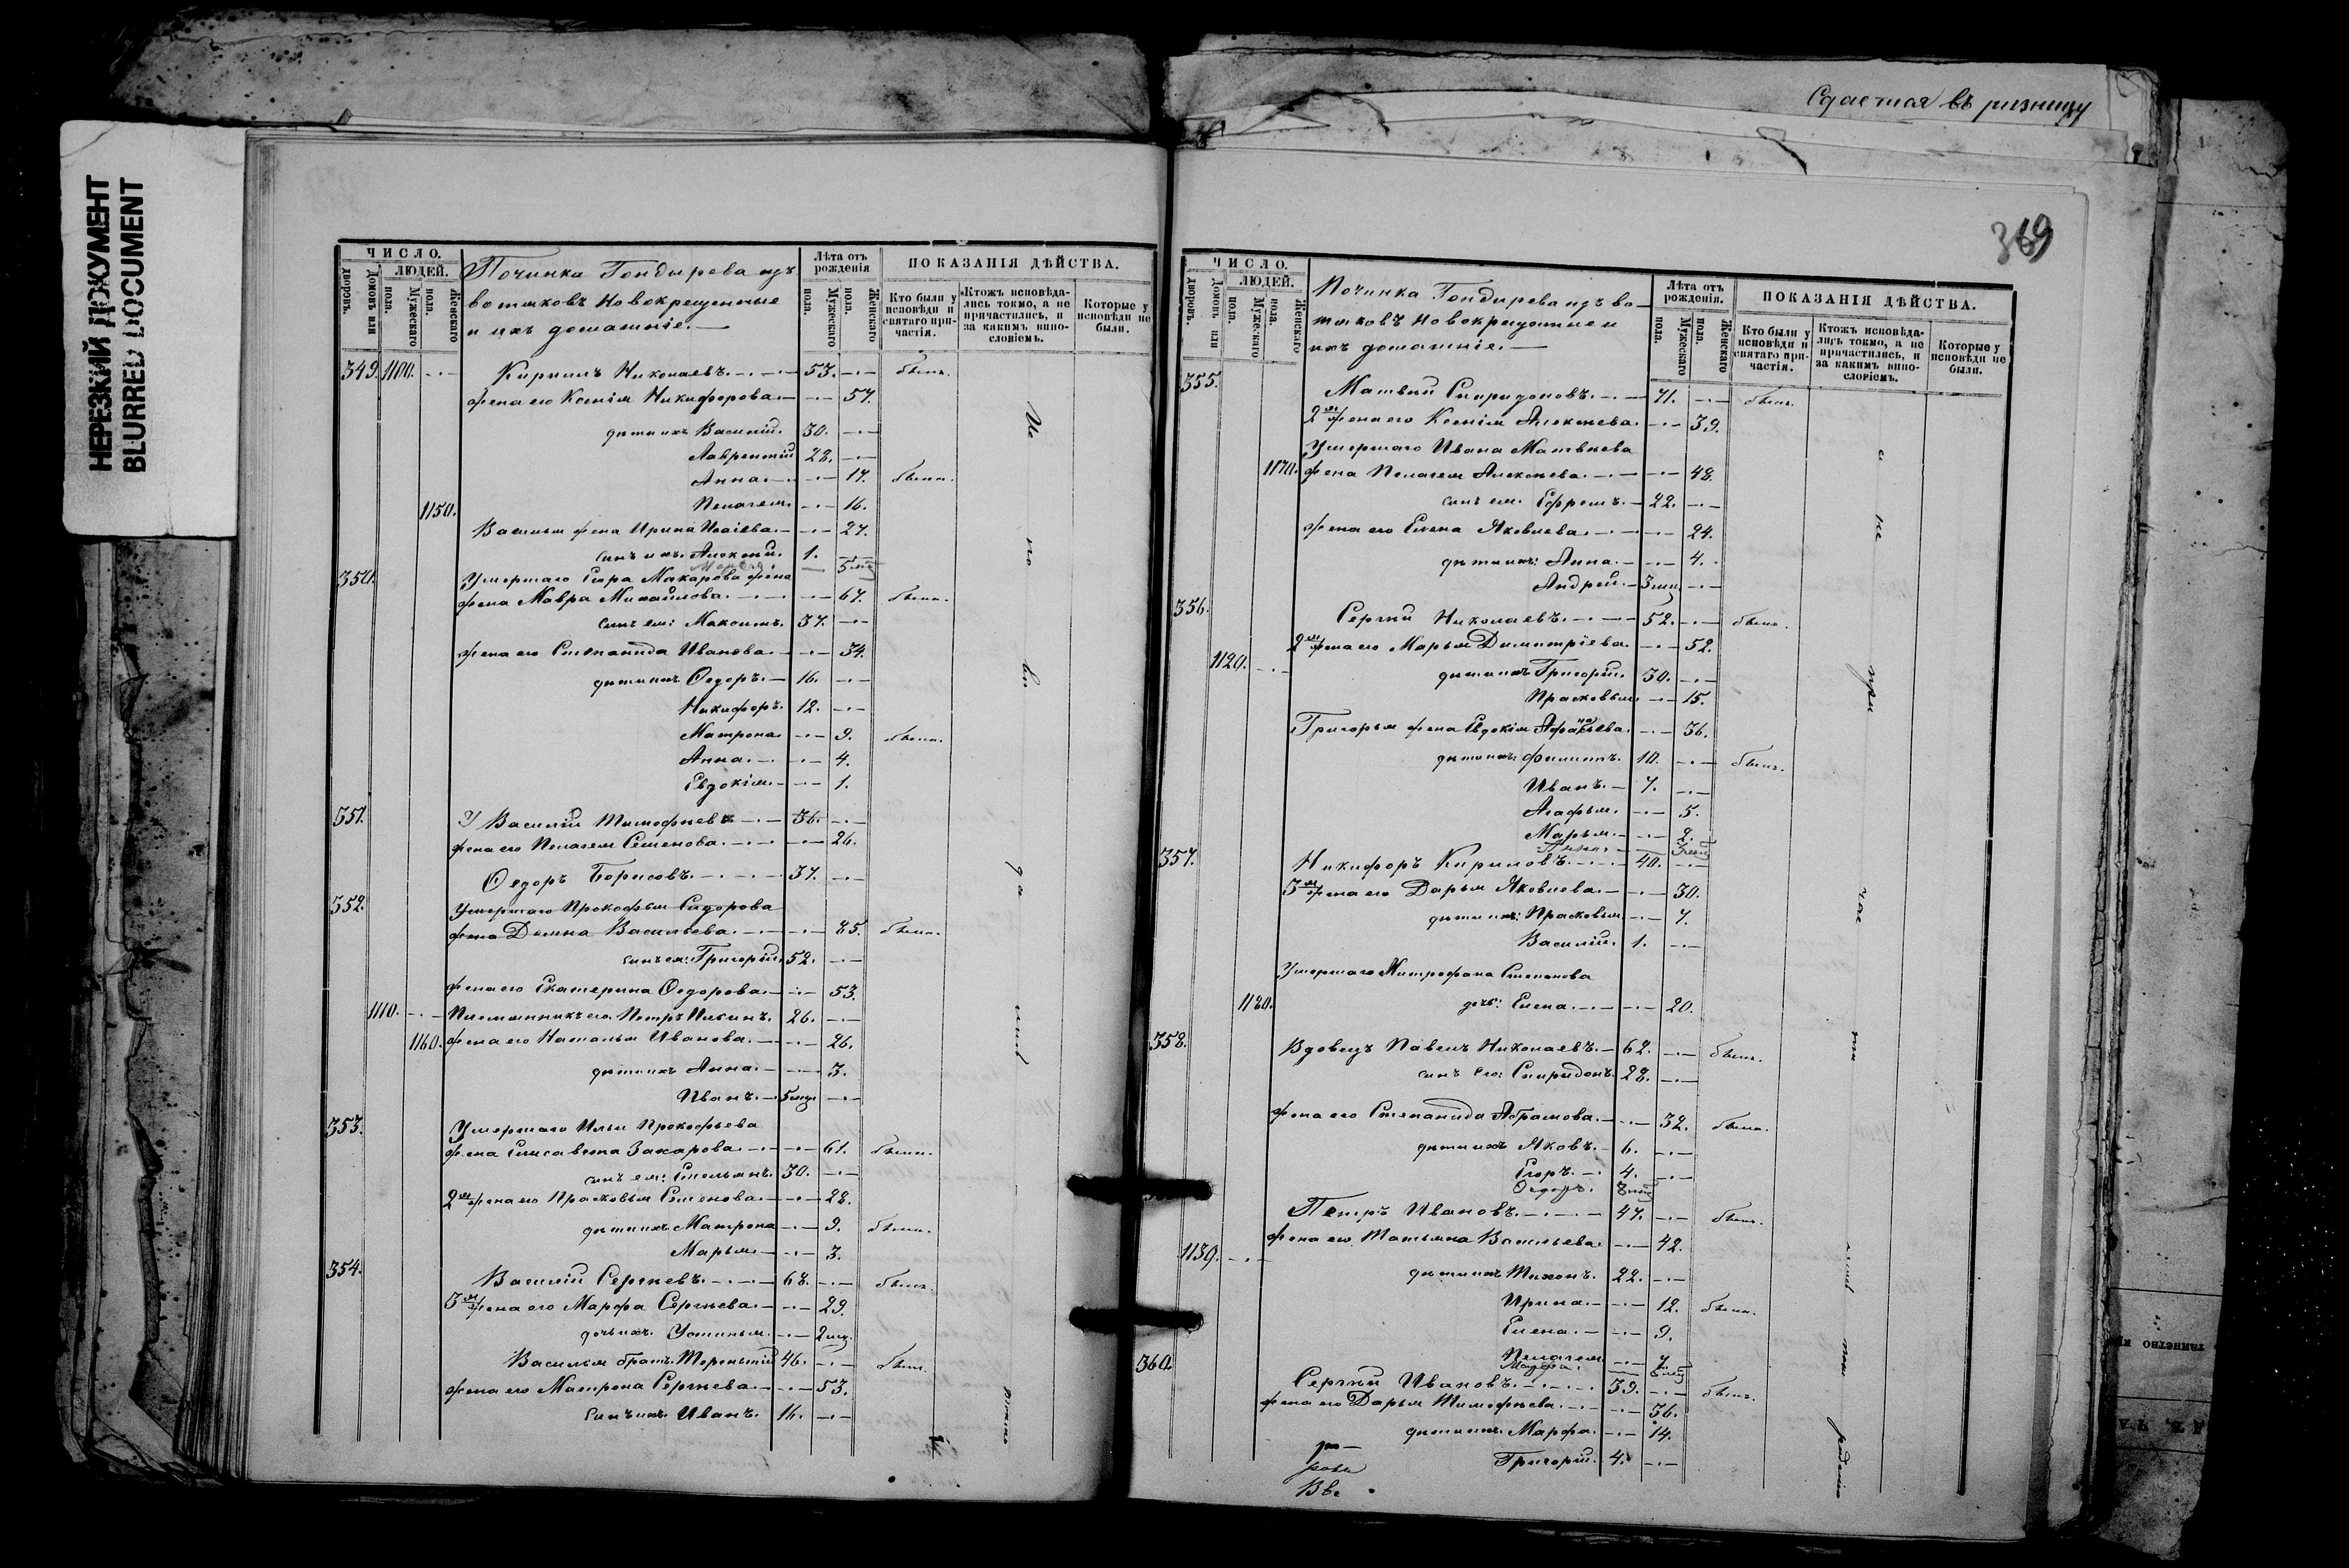 НЕРЕЗКИЙ ДОКУМЕНТ
BLURRED DOCUMENT
ЧИСЛО.
Дворовъ.
Домовъ или
ЛЮДЕЙ.
Мужескаго пола.
Женскаго пола.
Починка Гондырева изъ
вотяковъ Новокрещенные
и ихъ домашніе.
Лѣта отъ рожденія
Мужескаго пола.
Женскаго пола.
ПОКАЗАНІЯ ДѢЙСТВА.
Кто были у исповѣди и святаго причастія.
Ктожъ исповѣдались токмо, а не причастились, и за какимъ винословіемъ.
Которые у исповѣди не были.
349. 1100. Кирилъ Николаевъ. 53. былъ.
жена его Ксенія Никифорова 57.
дѣти ихъ Василій. 30.
Лаврентій 28.
Анна. 17. была.
1150. Пелагея. 16.
Василья жена Ирина Исаіева. 27.
сынъ ихъ. Алексѣй. 1.
5 мѣс
350. Умершаго Егора Макарова жена
жена Мавра Михайлова. 67. была.
сынъ ея: Максимъ. 37.
жена его Степанида Иванова. 34.
дѣти ихъ Ѳедоръ. 16.
Никифоръ. 12.
Матрона 9. была.
Анна. 4.
Евдокія. 1.
351. Василій Тимофѣевъ 36.
жена его Пелагея Семенова. 26.
Ѳедоръ Борисовъ. 37.
352. Умершаго Прокофья Сидорова
жена Домна Васильева. 85. была.
сынъ ея: Григорій. 52.
жена его Екатерина Ѳедорова. 53.
1110. Племянникъ его. Петръ Ильинъ. 26.
1160. жена его Наталья Иванова. 26.
дѣти ихъ Анна. 3.
Иванъ. 5 мѣс
353. Умершаго Ильи Прокофьева
жена Елисавета Захарова. 61. была.
сынъ ея: Емельянъ. 30.
2я жена его Прасковья Семенова. 28.
дѣти ихъ Матрона 9. была.
Марья. 3.
354. Василій Сергѣевъ. 68. былъ.
3я жена его Марфа Сергѣева. 29.
дочь ихъ. Устинья. 2 мѣс.
Василья братъ. Терентій 46. былъ.
жена его Матрона Сергѣева. 53.
сынъ ихъ. Иванъ. 16.
Сдается въ ризницу
369
ЧИСЛО.
Дворовъ.
Домовъ или
ЛЮДЕЙ.
Мужескаго пола.
Женскаго пола.
Починка Гондырева изъ во-
тяковъ Новокрещенные и
ихъ домашніе.
Лѣта отъ рожденія.
Мужескаго пола.
Женскаго пола.
ПОКАЗАНІЯ ДѢЙСТВА.
Кто были у исповѣди и святаго причастія.
Ктожъ исповѣдались токмо, а не причастились, и за какимъ винословіемъ.
Которые у исповѣди не были.
355. Матвѣй Спиридоновъ. 71. былъ.
2я жена его Ксенія Алексѣева. 39.
Умершаго Ивана Матвѣева
1170. жена Пелагея Алексѣева. 48.
сынъ ея. Ефремъ. 22.
жена его Елена Яковлева. 24.
дѣти ихъ: Анна. 4.
Андрей. 3 мѣс
356. Сергѣй Николаевъ. 52. былъ.
2я жена его Марья Димитріева. 52.
1120. дѣти ихъ Григорій. 30.
Прасковья. 15.
Григорья жена Евдокія Афанасьева. 36.
дѣти ихъ: Филиппъ. 10. былъ.
Иванъ. 7.
Агафья. 5.
Марья. 2.
357. Никифоръ Кириловъ. 40.
3я жена его Дарья Яковлева. 30.
дѣти ихъ: Прасковья. 7.
Василій. 1.
Умершаго Митрофана Степанова
1180. дочь: Елена. 20.
358. Вдовецъ Павелъ Николаевъ. 62. былъ.
сынъ его: Спиридонъ. 28.
жена его Степанида Абрамова. 32. была.
дѣти ихъ Яковъ. 6.
Егоръ. 4.
Ѳедоръ. 8 мѣс
Петръ Ивановъ. 47. былъ.
1130. жена его Татьяна Васильева. 42.
дѣти ихъ Тихонъ. 22.
Ирина. 12. была.
Елена. 9.
Пелагея
Марфа.
360. Сергѣй Ивановъ. 39. былъ.
жена его Дарья Тимофѣева. 36.
дѣти ихъ. Марфа. 14.
Григорій. 4.